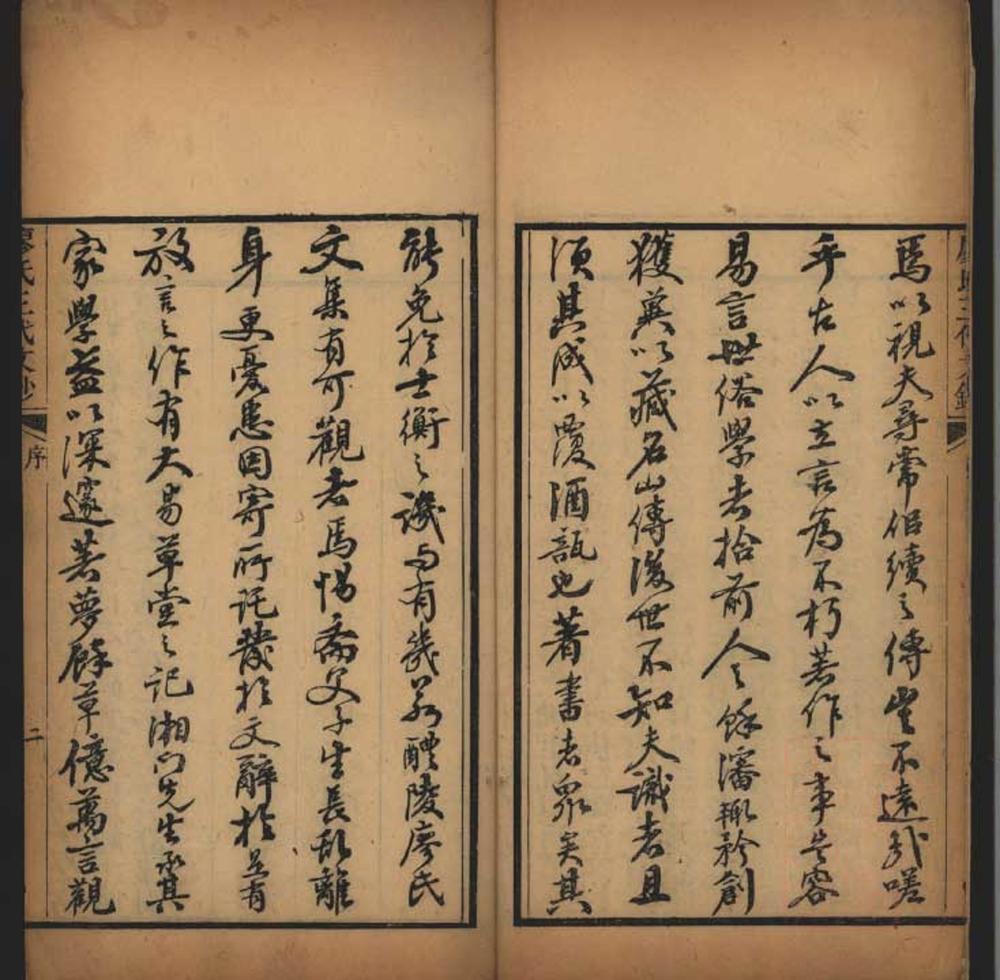 焉以視夫尋常似續之傳豈不遠哉嗟
乎古人以立言為不朽若作之事豈容
易言世俗學者拾前人之餘瀋輒矜創
獲冀以藏名山傳後世不知夫識者且
須其成以覆酒瓿也著書者眾矣其
能免於士衡之譏與有幾若醴陵廖氏
文集有可觀者焉惕齋父子生長亂離
身更憂患因寄所託發於文辭於是有
放言之作有大易草堂之記湘門先生承其
家學益以深邃著夢餘草億萬言觀
廖氏三代文鈔
序
二